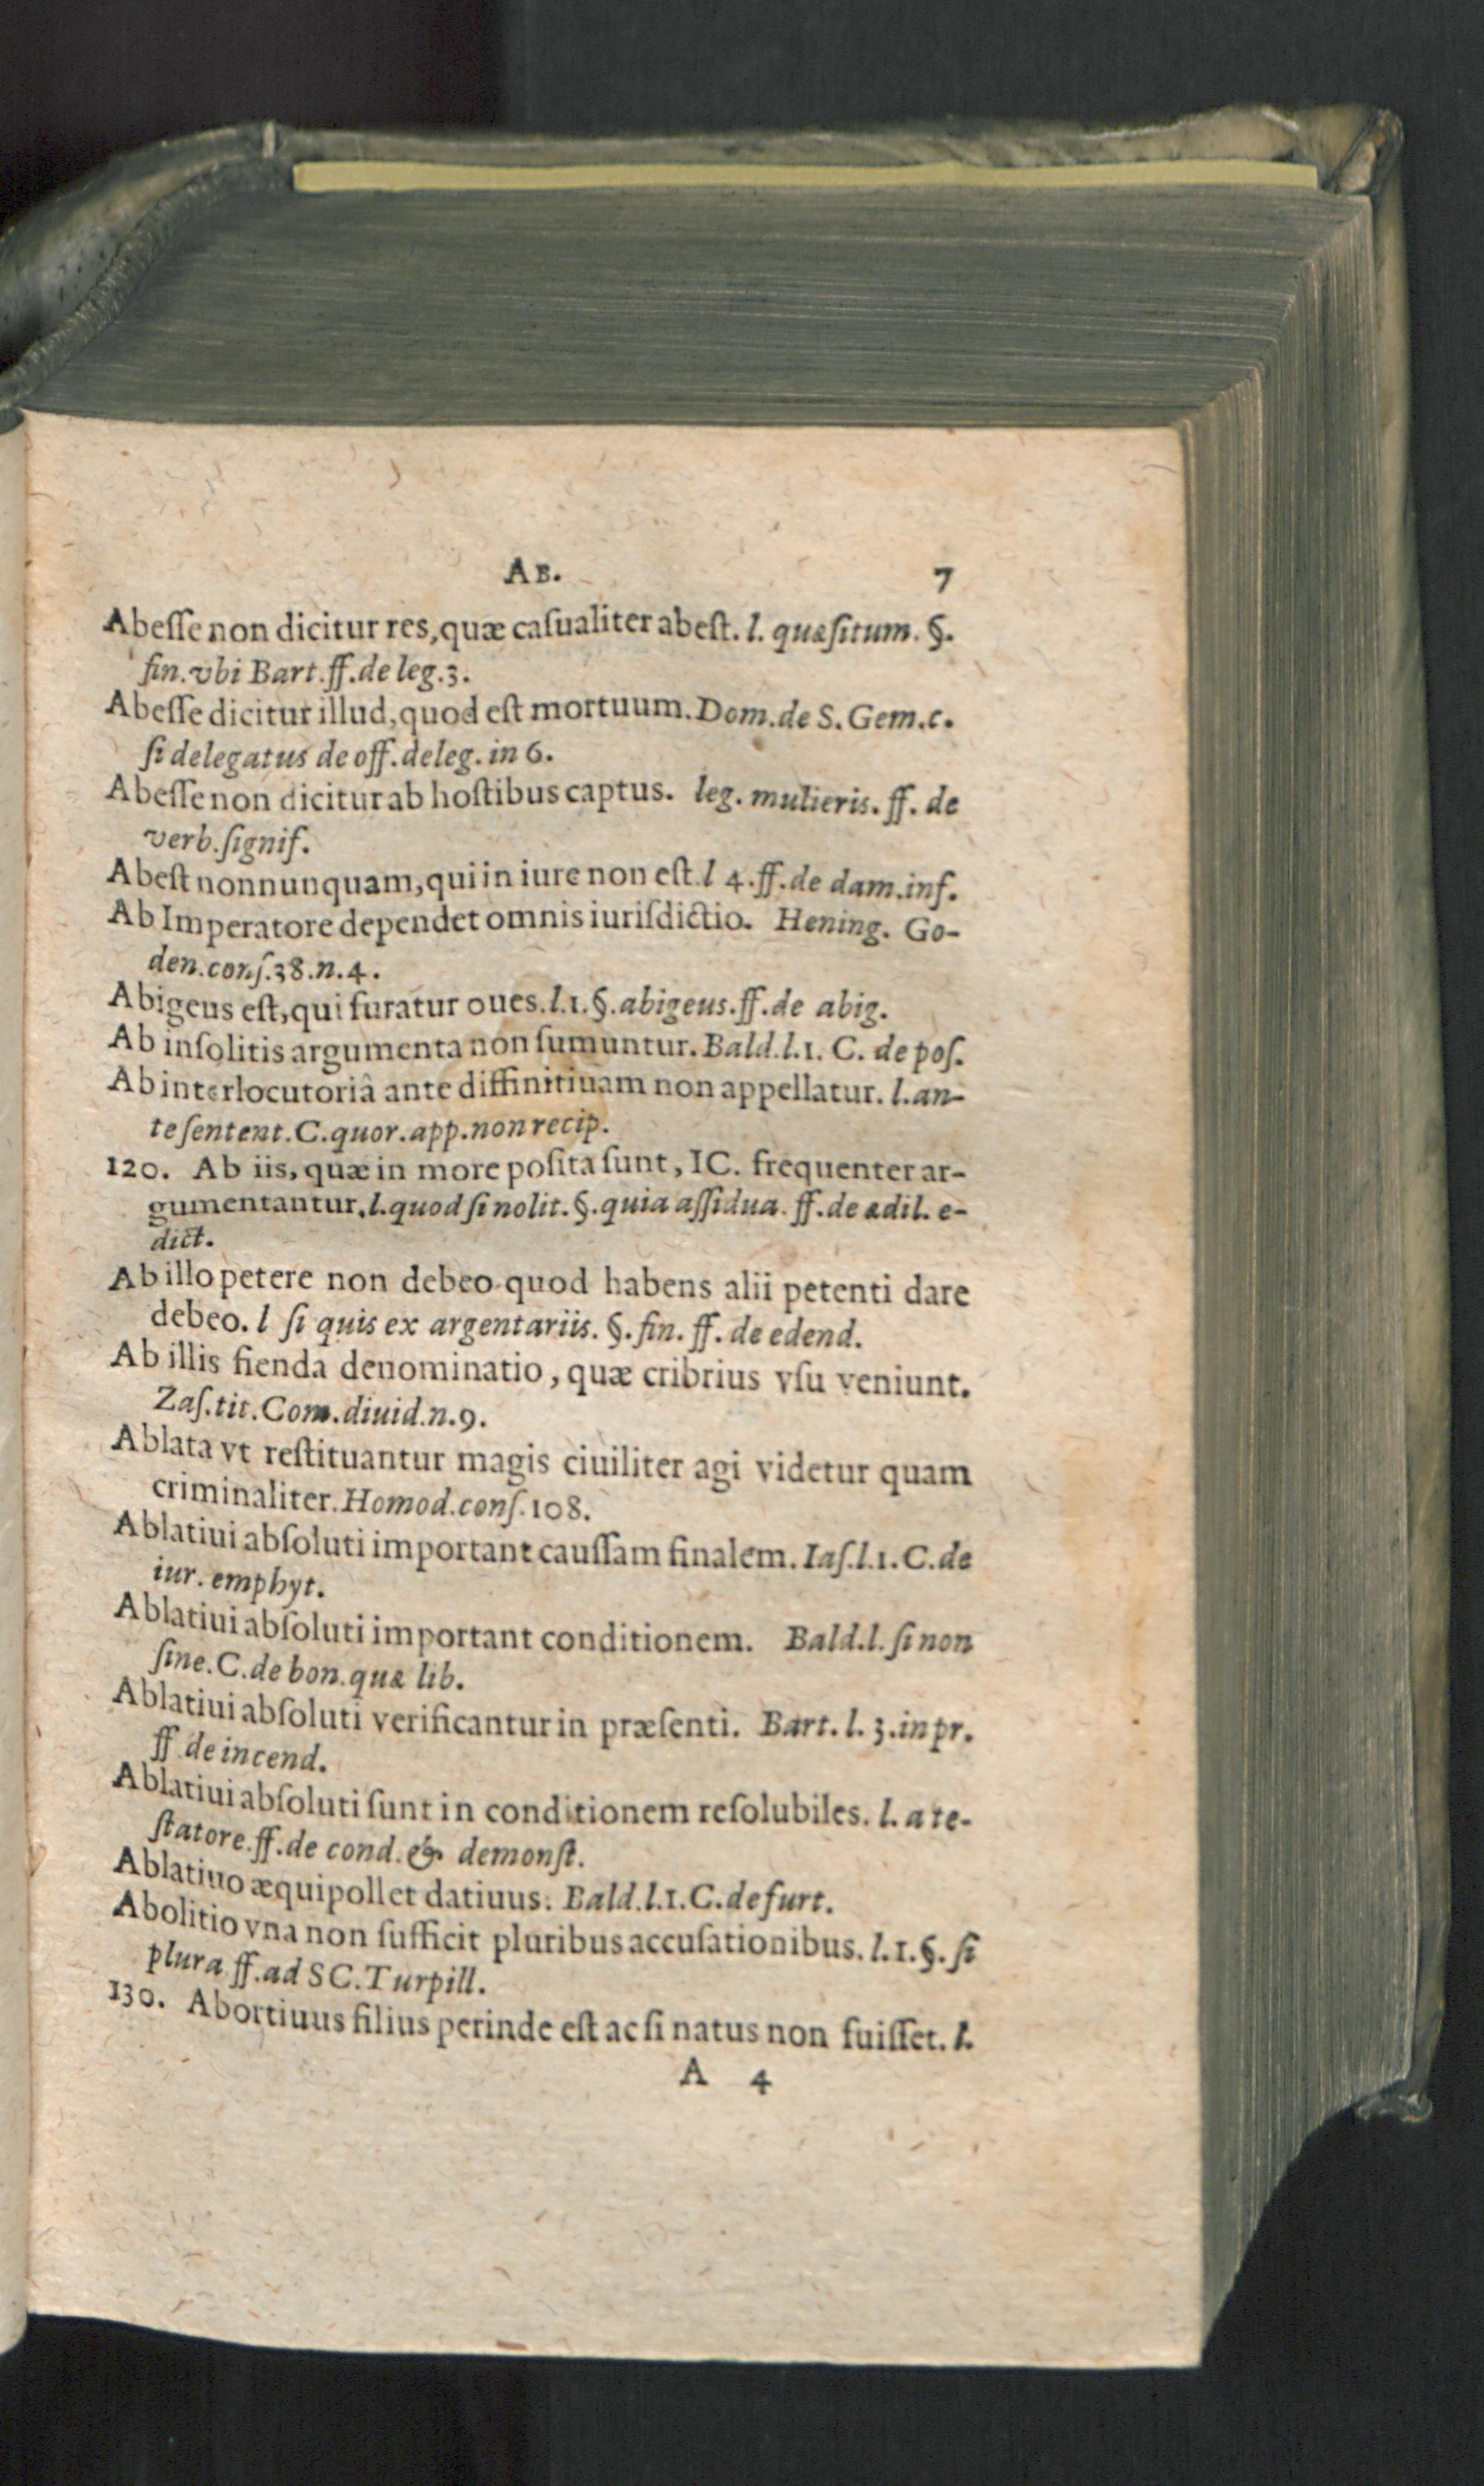 AB. 7
Abeſſe non dicitur res, quæ caſualiter abeſt. l. quæſitum. §.
fin. vbi Bart. ff. de leg. 3.
Abeſſe dicitur illud, quod eſt mortuum. Dom. de S. Gem. c.
ſi delegatus de off. deleg. in 6.
Abeſſe non dicitur ab hoſtibus captus. leg. mulieris. ff. de
verb. ſignif.
Abeſt nonnunquam, qui in iure non eſt. l 4. ff. de dam. inf.
Ab Imperatore dependet omnis iuriſdictio. Hening. Go-
den. conſ. 38. n. 4.
Abigeus eſt, qui furatur oues. l. 1. §. abigeus. ff. de abig.
Ab inſolitis argumenta non ſumuntur. Bald. l. 1. C. de poſ.
Ab interlocutoriâ ante diffinitiuam non appellatur. l. an-
te ſentent. C. quor. app. non recip.
120. Ab iis, quæ in more poſita ſunt, IC. frequenter ar-
gumentantur, l. quod ſi nolit. §. quia aſſidua. ff. de ædil. e-
dict.
Ab illo petere non debeo quod habens alii petenti dare
debeo. l ſi quis ex argentariis. §. fin. ff. de edend.
Ab illis fienda denominatio, quæ cribrius vſu veniunt.
Zaſ. tit. Com. diuid. n. 9.
Ablata vt reſtituantur magis ciuiliter agi videtur quam
criminaliter. Homod. conſ. 108.
Ablatiui abſoluti important cauſſam finalem. Iaſ. l. 1. C. de
iur. emphyt.
Ablatiui abſoluti important conditionem. Bald. l. ſi non
ſine. C. de bon. quæ lib.
Ablatiui abſoluti verificantur in præſenti. Bart. l. 3. in pr.
ff de incend.
Ablatiui abſoluti ſunt in conditionem reſolubiles. l. a te-
ſtatore. ff. de cond. & demonſt.
Ablatiuo æquipollet datiuus. Bald. l. 1. C. de furt.
Abolitio vna non ſufficit pluribus accuſationibus. l. 1. §. ſi
plura ff. ad SC. Turpill.
130. Abortiuus filius perinde eſt ac ſi natus non fuiſſet. l.
A 4